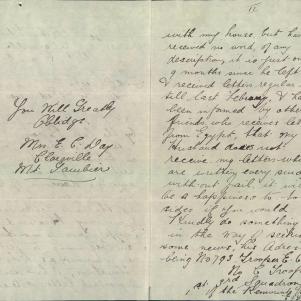 You Will Greatly
Oblidge.
Mrs E. C. Day
Glenville
Mt Gambier
with my house, but have
received no word, of any
description, it is just on
9 months since he left
& received letters regular
till last February, & have
been informed by other
friends who receives letters
from Egypt, that my
Husband does not
receive my letters which
are written every
without fail it will
be a happiness to
sides if you would
Kindly do something
in the way of
some news, his Adress
being No 793 Trooper E. C.
C Troop
3rd Squadron
of the Remount